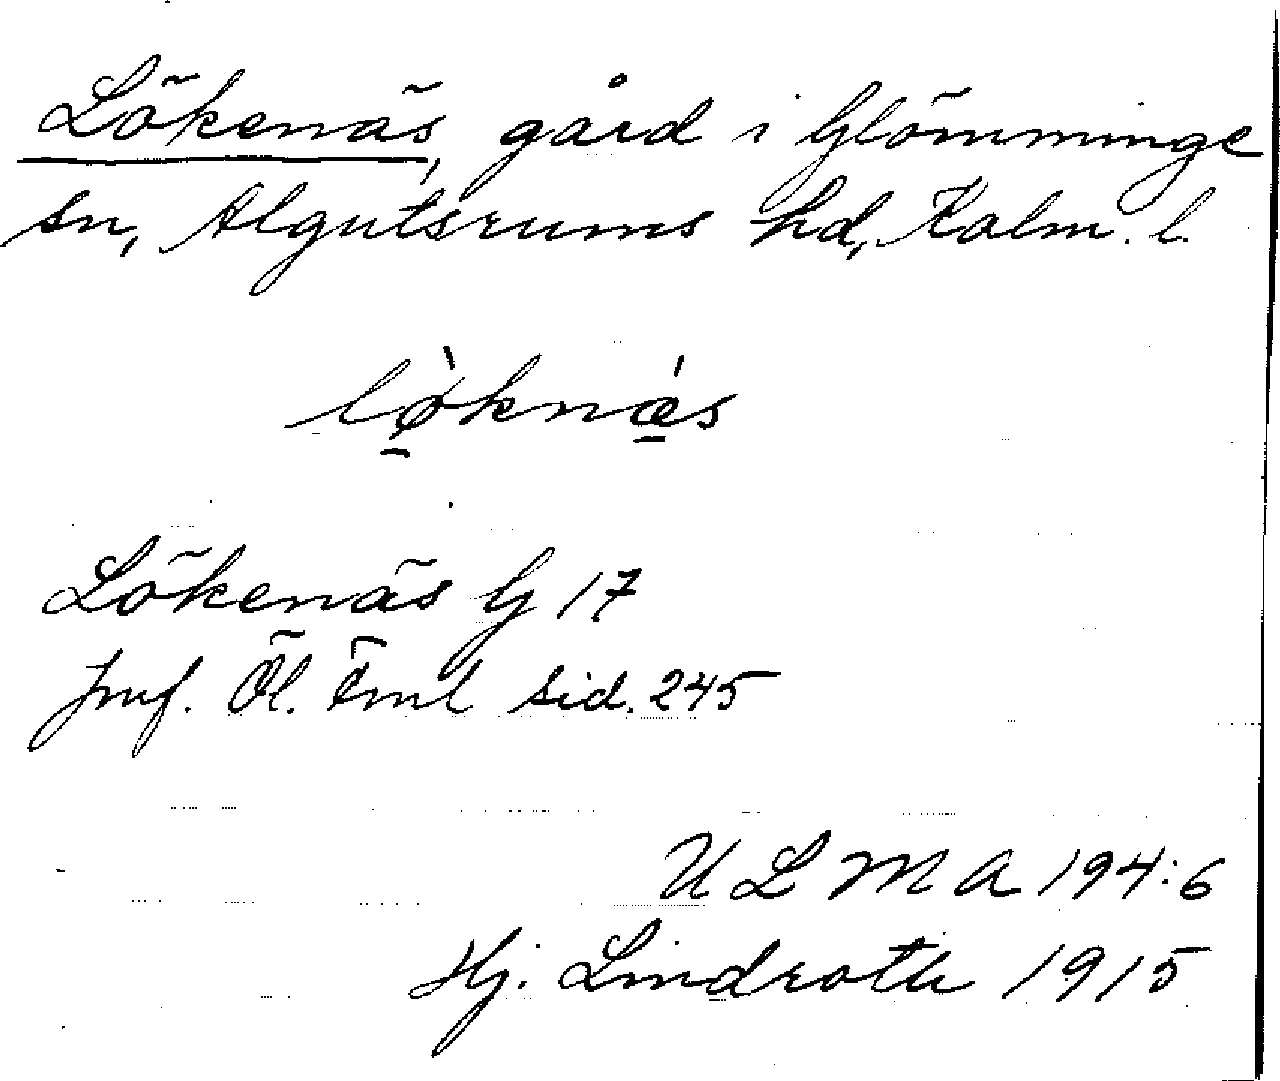 Lökenäs, gård i Glömminge
sn, Algutsrums hd, Kalm. l.
lø̱̀knǽ̱s
Lökenäs G 17
Jmf. Öl. Fml sid. 245
ULMA 194:6
Hj. Lindroth 1915